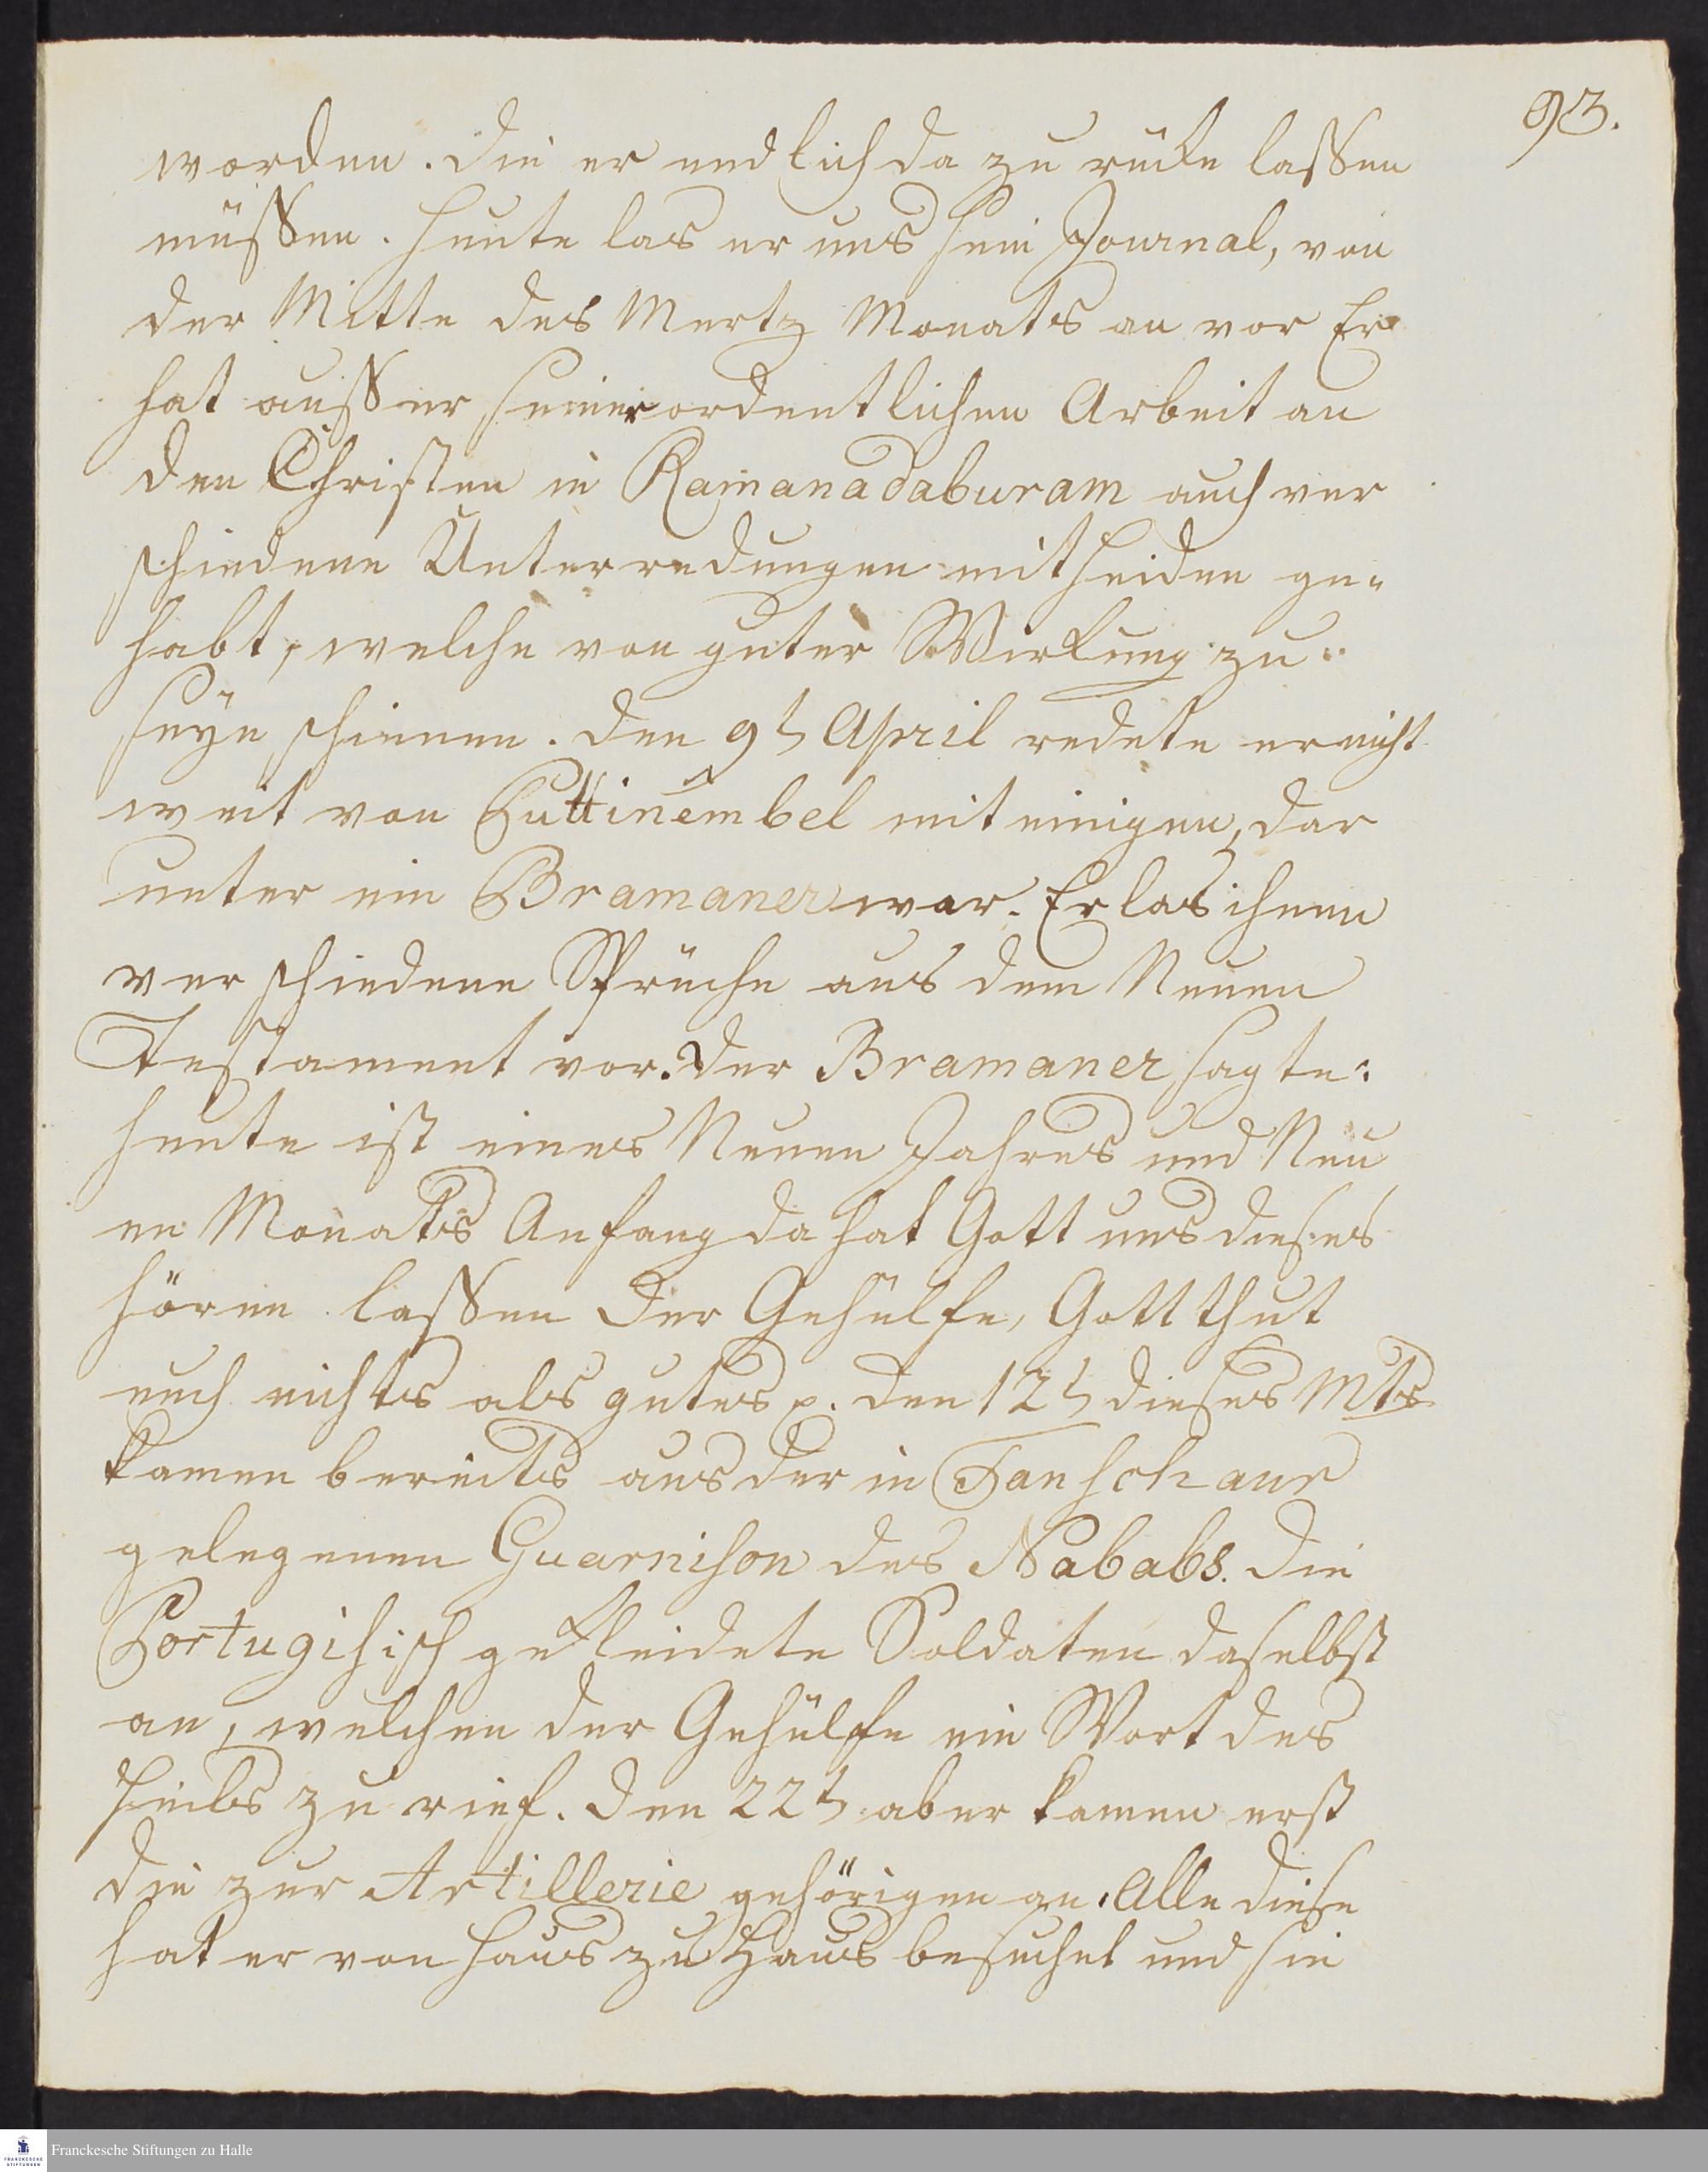 93.
worden. die er endlich da zu rücke lassen
müssen. Heute las er uns sein Journal, von
der Mitte des Mertz Monats an vor Er
hat ausser seiner ordentlichen Arbeit an
den Christen in Ramanadaburam auch ver
schiedene Unterredungen mit Heiden ge-
habt, welche von guter Wirkung zu
seyn schienen. den 9t April redete er nicht
weit von Puttinembel mit einigen, dar
unter ein Bramaner war. Er las ihnen
verschiedene Sprüche aus dem Neuen
Testament vor. der Bramaner sagte:
heute ist eines Neuen Jahres und Neu
en Monats Anfang da hat Gott uns dieses
hören lassen der Gehülfe, Gott thut
euch nichts als gutes p. den 12t dieses Mts
kamen bereits aus der in Tanschaur
gelegenen Guarnison des Nababs. die
Portugisisch gekleidete Soldaten daselbst
an, welchen der Gehülfe ein Wort des
Heils zu rief. den 22t aber kamen erst
die zur Artillerie gehörigen an. Alle diese
hat er von Haus zu Haus besuchet und sie
Franckesche Stiftungen zu Halle
FRANCKESCHE STIFTUNGEN